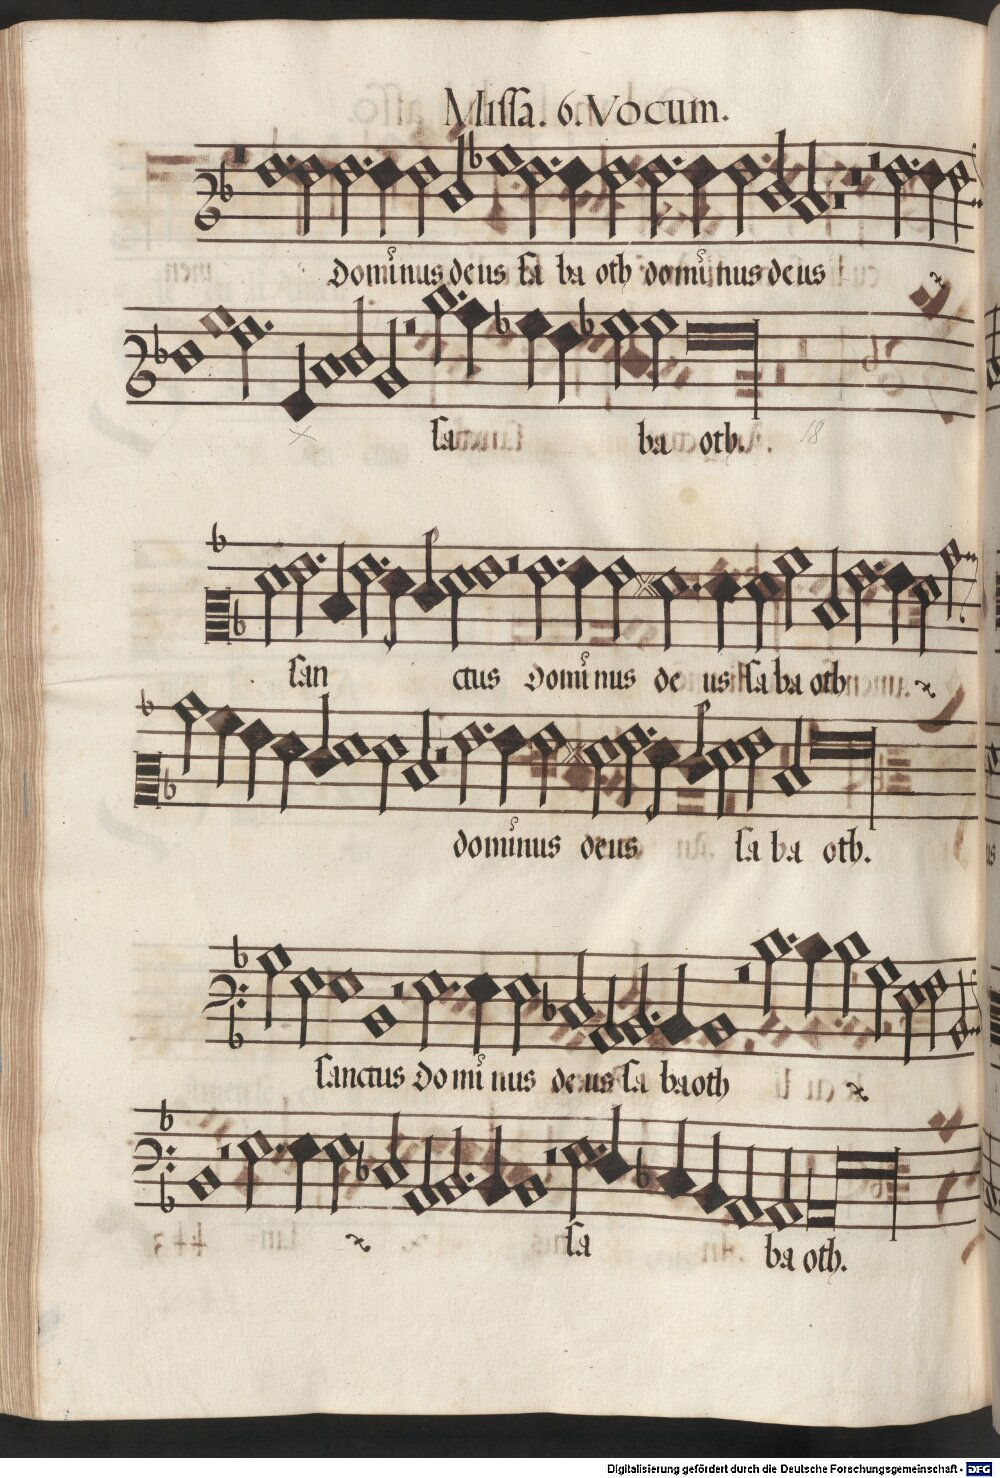 Missa. 6. Vocum.
Dominus deus sa ba oth dominus deus
sa ba oth.
18
san ctus Dominus de us sa ba oth
dominus deus sa ba oth.
sanctus Dominus deus sa baoth
sa ba oth.
Digitalisierung gefördert durch die Deutsche Forschungsgemeinschaft - DFG